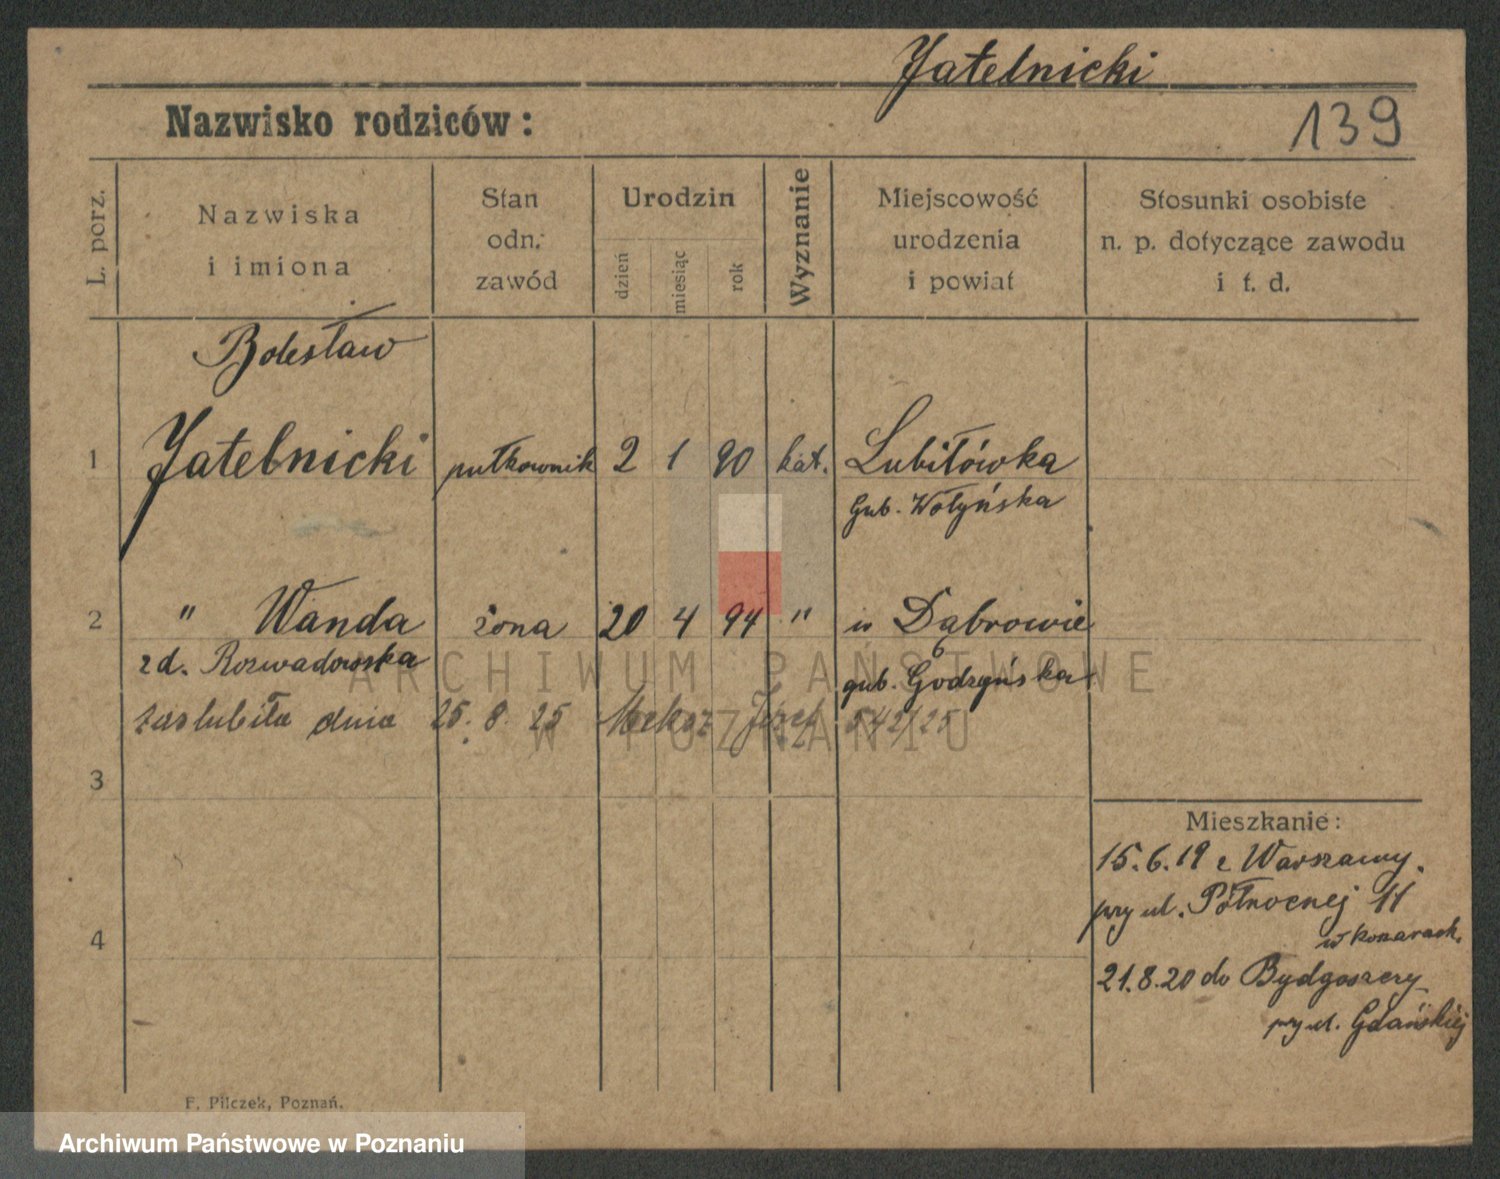 Jatelnicki
139
Nazwisko rodziców:
L. porz.
Nazwiska
i imiona
Stan
odn.
zawód
Urodzin
dzień
miesiąc
rok
Wyznanie
Miejscowość
urodzenia
i powiat
Stosunki osobiste
n. p. dotyczące zawodu
i t. d.
Bolesław
1 Jatelnicki pułkownik 2 1 90 kat. Lubitówka
Gub. Wołyńska
2 " Wanda żona 20 4 94 " w Dąbrowie
zd. Rozwadowska gub. Godzyńska
zaslubiła dnia 25. 8. 25 Józef 542/25
ARCHIWUM PAŃSTWOWE
W POZNANIU
3
4
Mieszkanie:
15.6.19 z Warszawy.
przy ul. Północnej 11
w koszarach.
21.8.20 do Bydgoszczy
przy ul. Gdańskiej
F. Pilczek, Poznań.
Archiwum Państwowe w Poznaniu